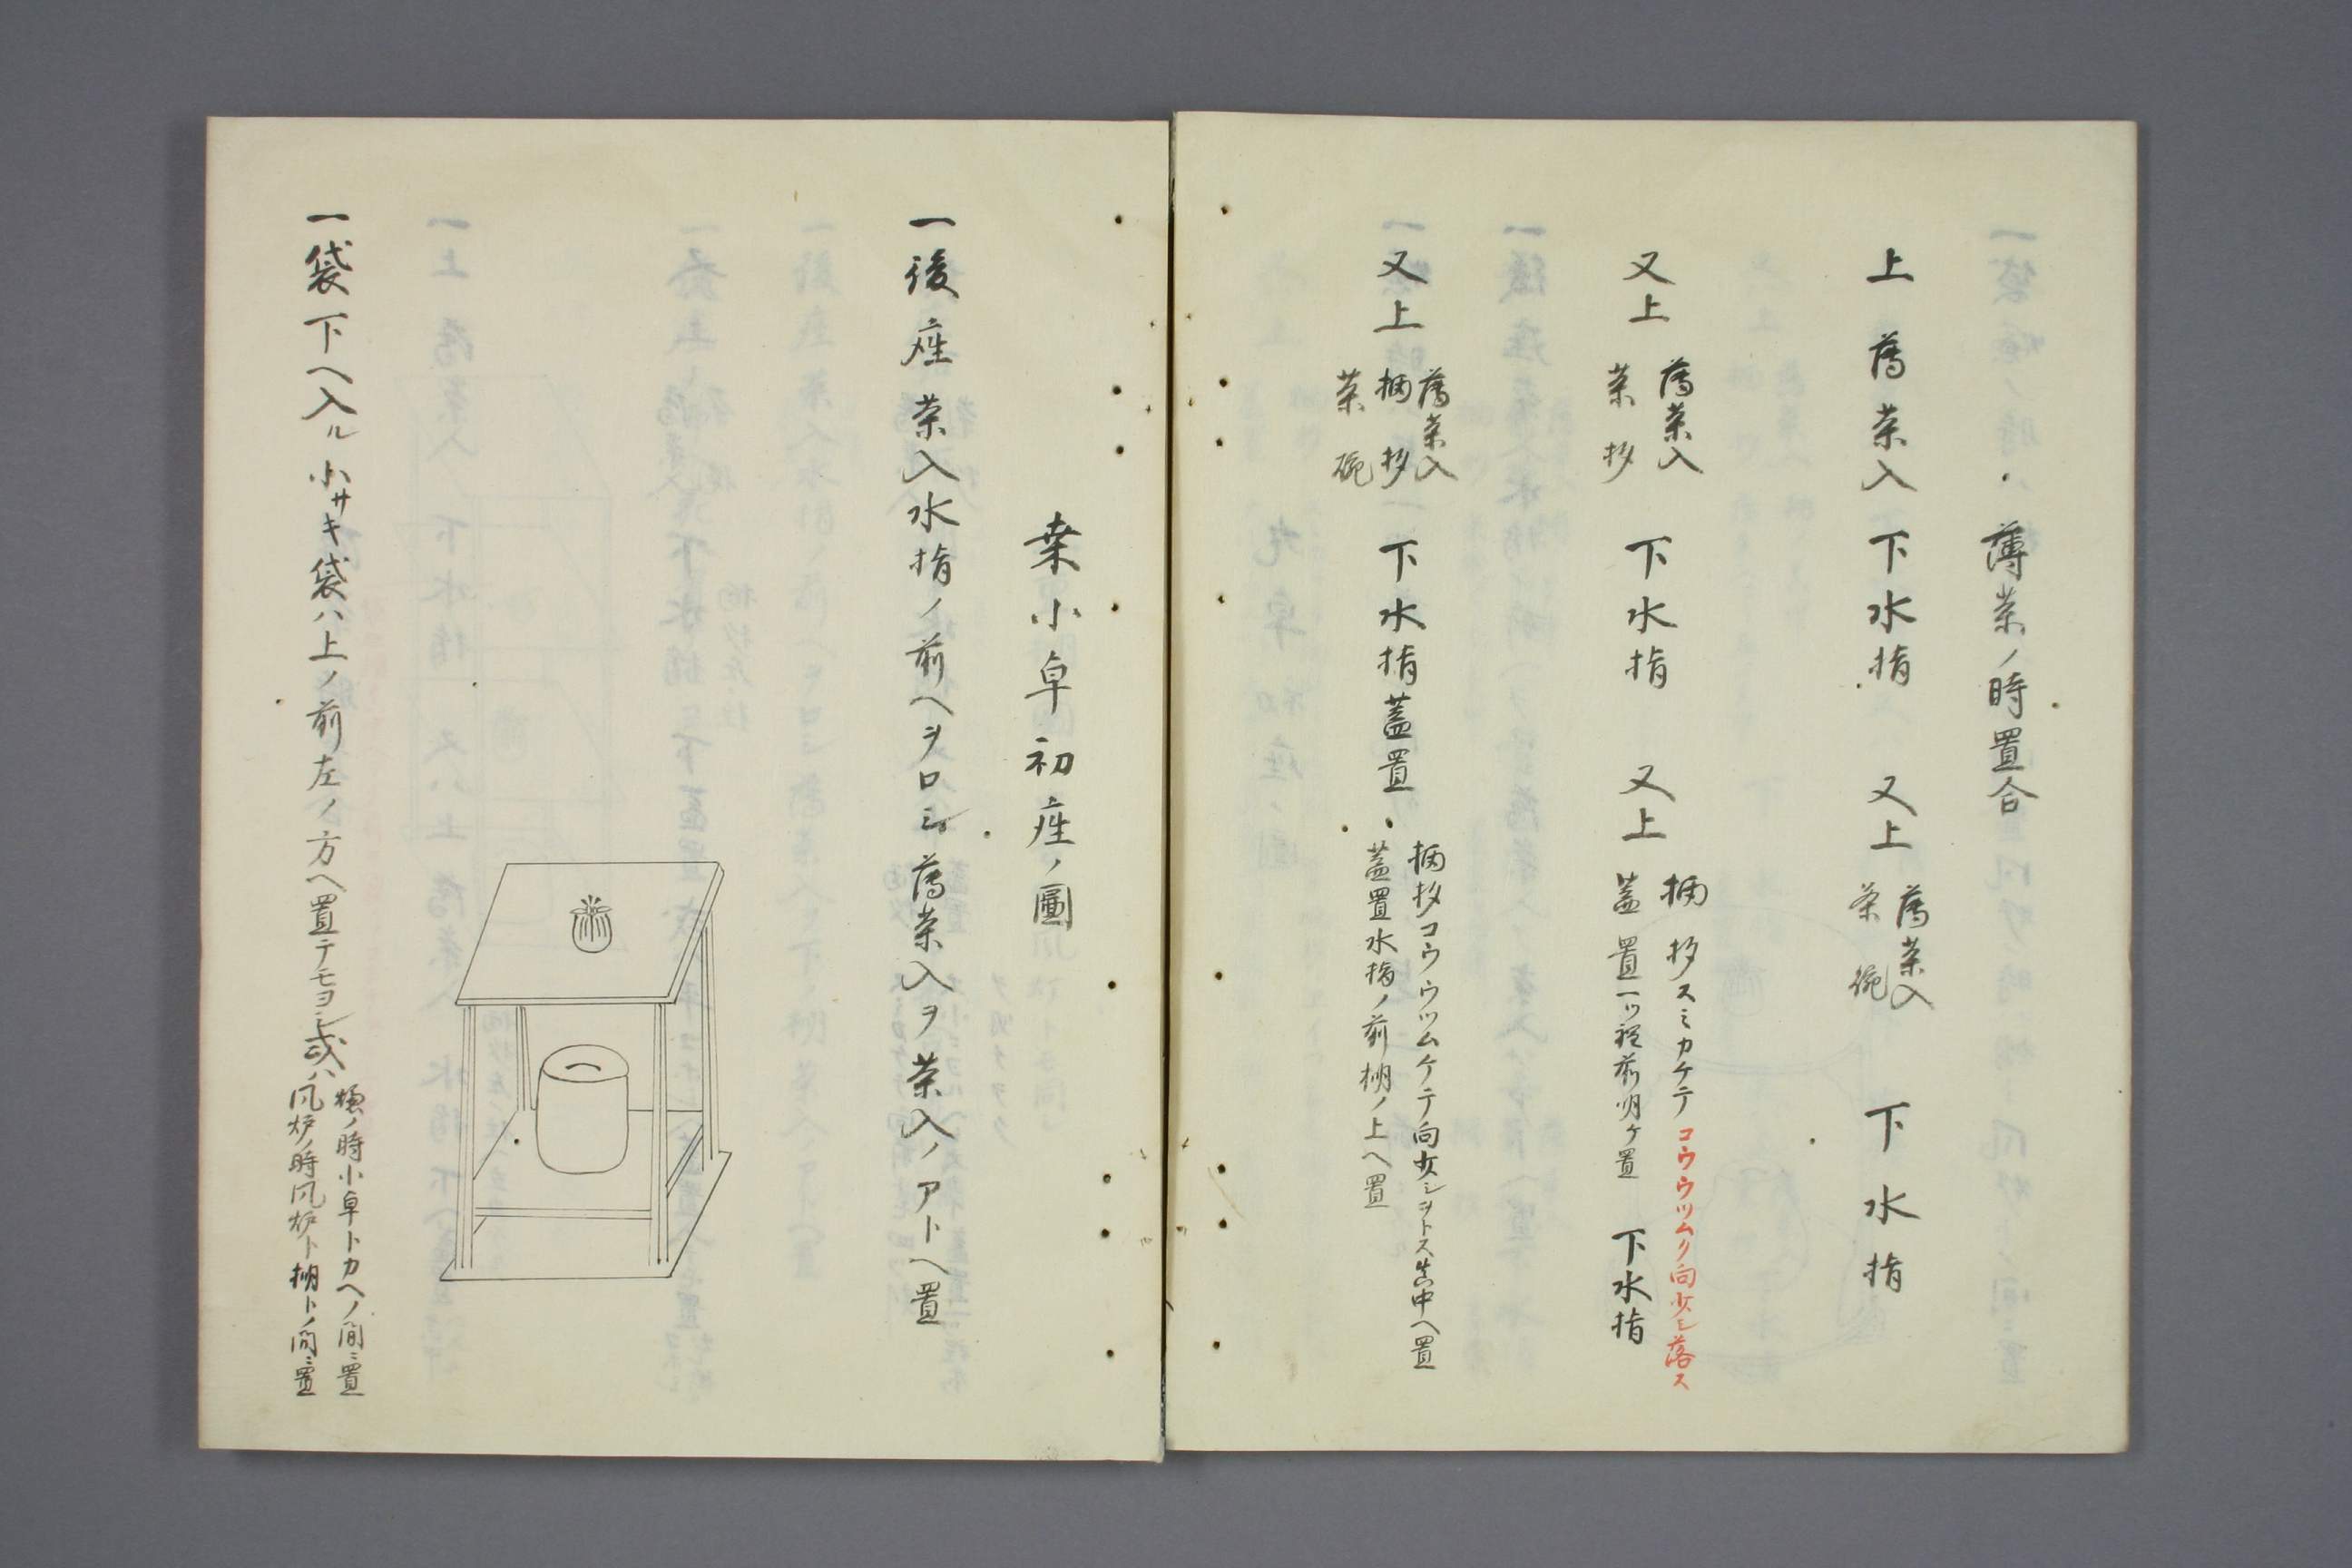 薄茶ノ時置合
上 薄茶入 下水指 又上 薄茶入 茶碗 下水指
又上 薄茶入 茶杓 下水指 又上 柄杓スミカケテコウウツムク向少シ落ス 蓋置一ツ程前明ケ置 下水指
又上 薄茶入 柄杓 茶碗 下水指蓋置 柄杓コウウツムケテ向少シヲトス真中ヘ置 蓋置水指ノ前棚ノ上ヘ置
桒小卓初座ノ圖
一後座茶入水指ノ前ヘヲロシ薄茶入ヲ茶入ノアトヘ置
一袋下ヘ入ル小サキ袋ハ上ノ前左ノ方ヘ置テモヨシ或ハ ノ時小卓トカヘノ間ニ置 風炉ノ時風炉ト棚トノ間ニ置